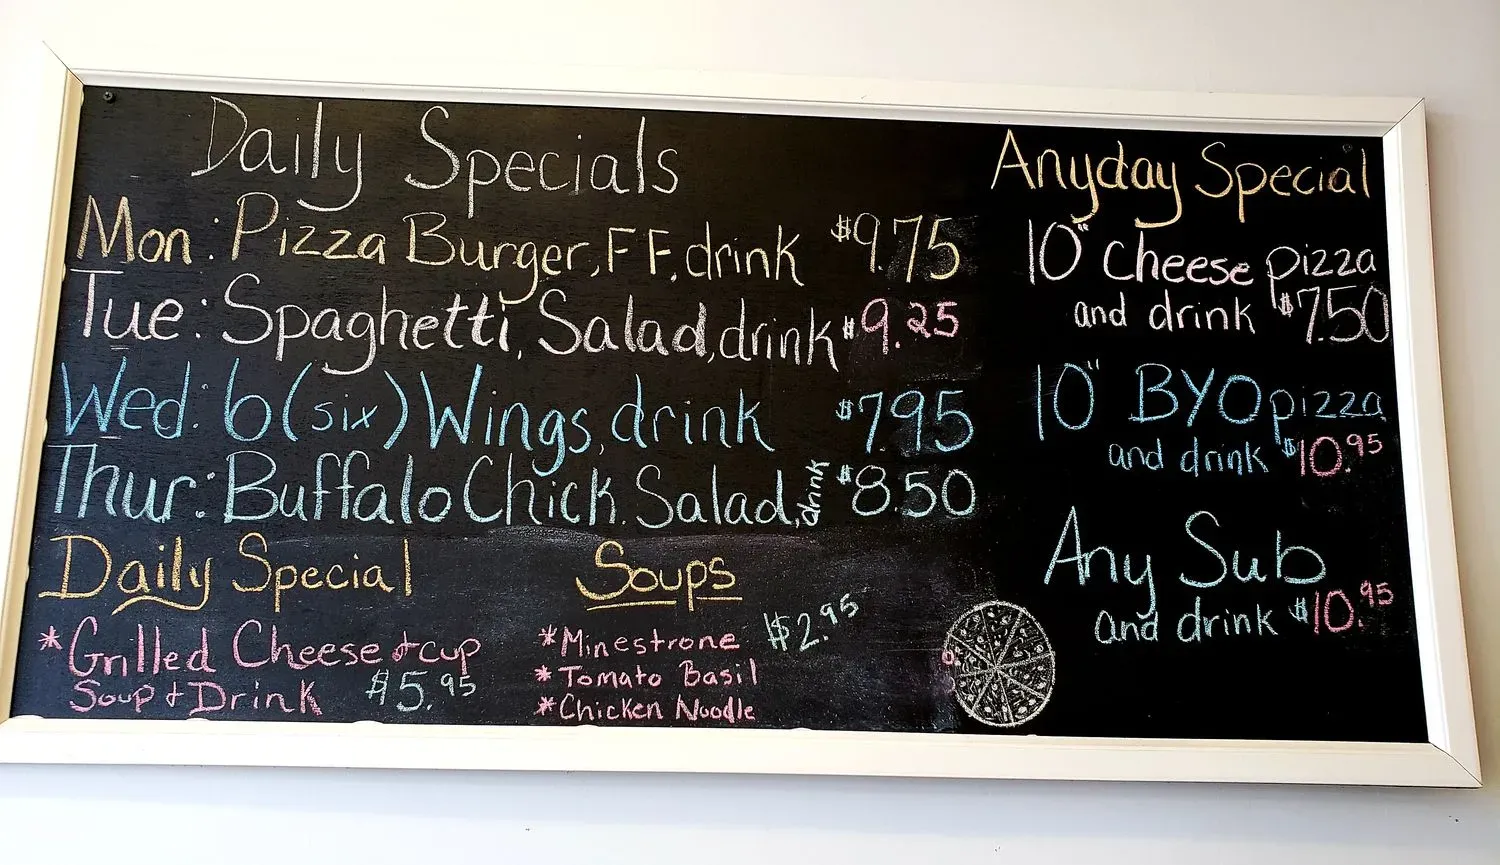 Daily Specials
Mon: Pizza Burger, FF, drink $9.75
Tue: Spaghetti, Salad, drink $9.25
Wed: 6 (six) Wings, drink $7.95
Thur: Buffalo Chick. Salad, drink $8.50
Daily Special
*Grilled Cheese & cup
Soup & Drink $5.95
Soups
*Minestrone $2.95
*Tomato Basil
*Chicken Noodle
Anyday Special
10" Cheese pizza
and drink $7.50
10" BYO pizza
and drink $10.95
Any Sub
and drink $10.95